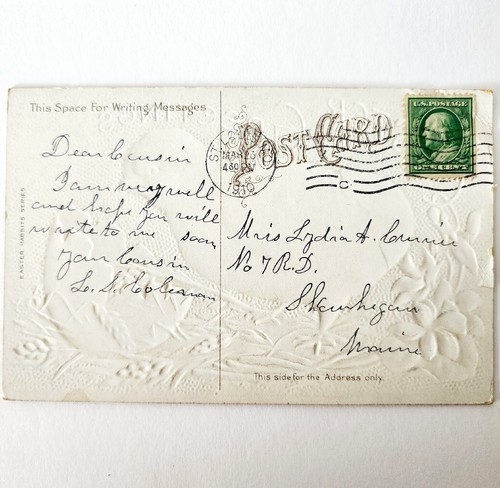 This Space For Writing Messages
POST CARD
U.S. POSTAGE
MAR 23
430 PM
1910
C
Dear Cousin
I am very well
and hope you will
write to me soon
your Cousin
L. S. Coleman
Miss Lydia A. Currier
No 7 R.D.
Skowhegan
Maine
EASTER RABBITS SERIES
This side for the Address only.